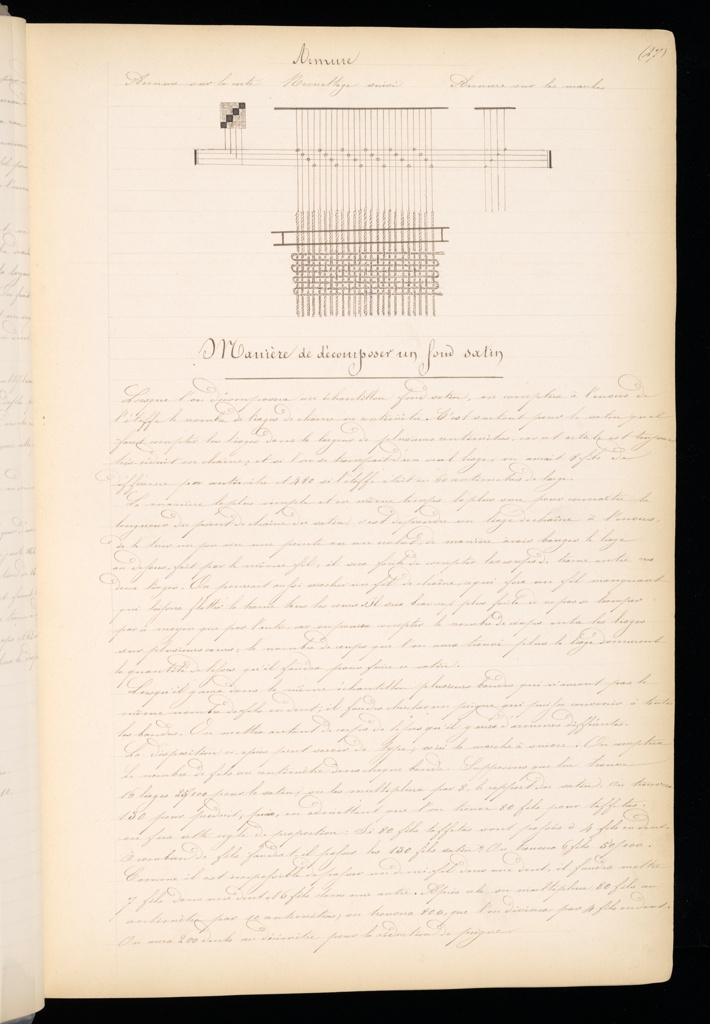 Armure
(27)
Armure sur la carte Remettage suivi Armure sur les marches
Manière de décomposer un fond satin
Lorsque l'on décomposera un échantillon fond satin, on comptera à l'envers de
l'étoffe le nombre de liages de chaîne au centimètre. C'est surtout pour le satin qu'il
faut compter les liages dans la largeur de plusieurs centimètres, car
et si l'on se trompait d'un seul liage, on aurait 8 fils de
différence par centimètre et 480 si l'étoffe était en 60 centimètres de large.
La manière la plus simple et en même temps la plus sure pour connaître la
longueur du point de chaîne du satin, c'est de prendre un liage de chaîne à l'envers,
de le tirer un peu avec une pointe ou une de manière
au dessus, fait par le même fil, il sera facile de compter les coups de trame entre ces
deux liages. On pourrait aussi arracher un fil de chaîne, ce qui fera un fil manquant
qui laissera flotter la trame dans les
par ce moyen que par l'autre, car on pourra compter le nombre de coups entre les liages
sur plusieurs courses, le nombre de coups que l'on aura trouvé plus le liage donneront
la quantité de lisses qu'il faudra pour faire ce satin.
Lorsqu'il y aura dans le même échantillon plusieurs bandes qui n'auront pas le
même nombre de fils en dent, il faudra chercher un peigne qui puisse convenir à toutes
les bandes. On mettra autant de corps de lisses qu'il y aura d'armures différentes.
La disposition ci-après peut servir de type, voici la marche à suivre. On comptera
le nombre de fils au centimètre dans chaque bande. Supposons que l'on trouve
16 liages 25/100 pour le satin, on les multipliera par 8, le rapport du satin. On trouvera
130 pour produit, puis, en admettant que l'on trouve 80 fils pour taffetas,
on fera cette règle de proportion: Si 80 fils taffetas sont passés à 4 fils en dent,
à combien de fils faudra-t-il passer les 130 fils satin? On trouvera 6 fils 50/100.
Comme il est impossible de passer un demi fil dans une dent, il faudra mettre
7 fils dans une dent et 6 fils dans une autre. Après cela, on multipliera 80 fils au
centimètre par 10 centimètres, on trouvera 800, que l'on divisera par 4 fils en dent.
On aura 200 dents au décimètre pour la réduction du peigne.